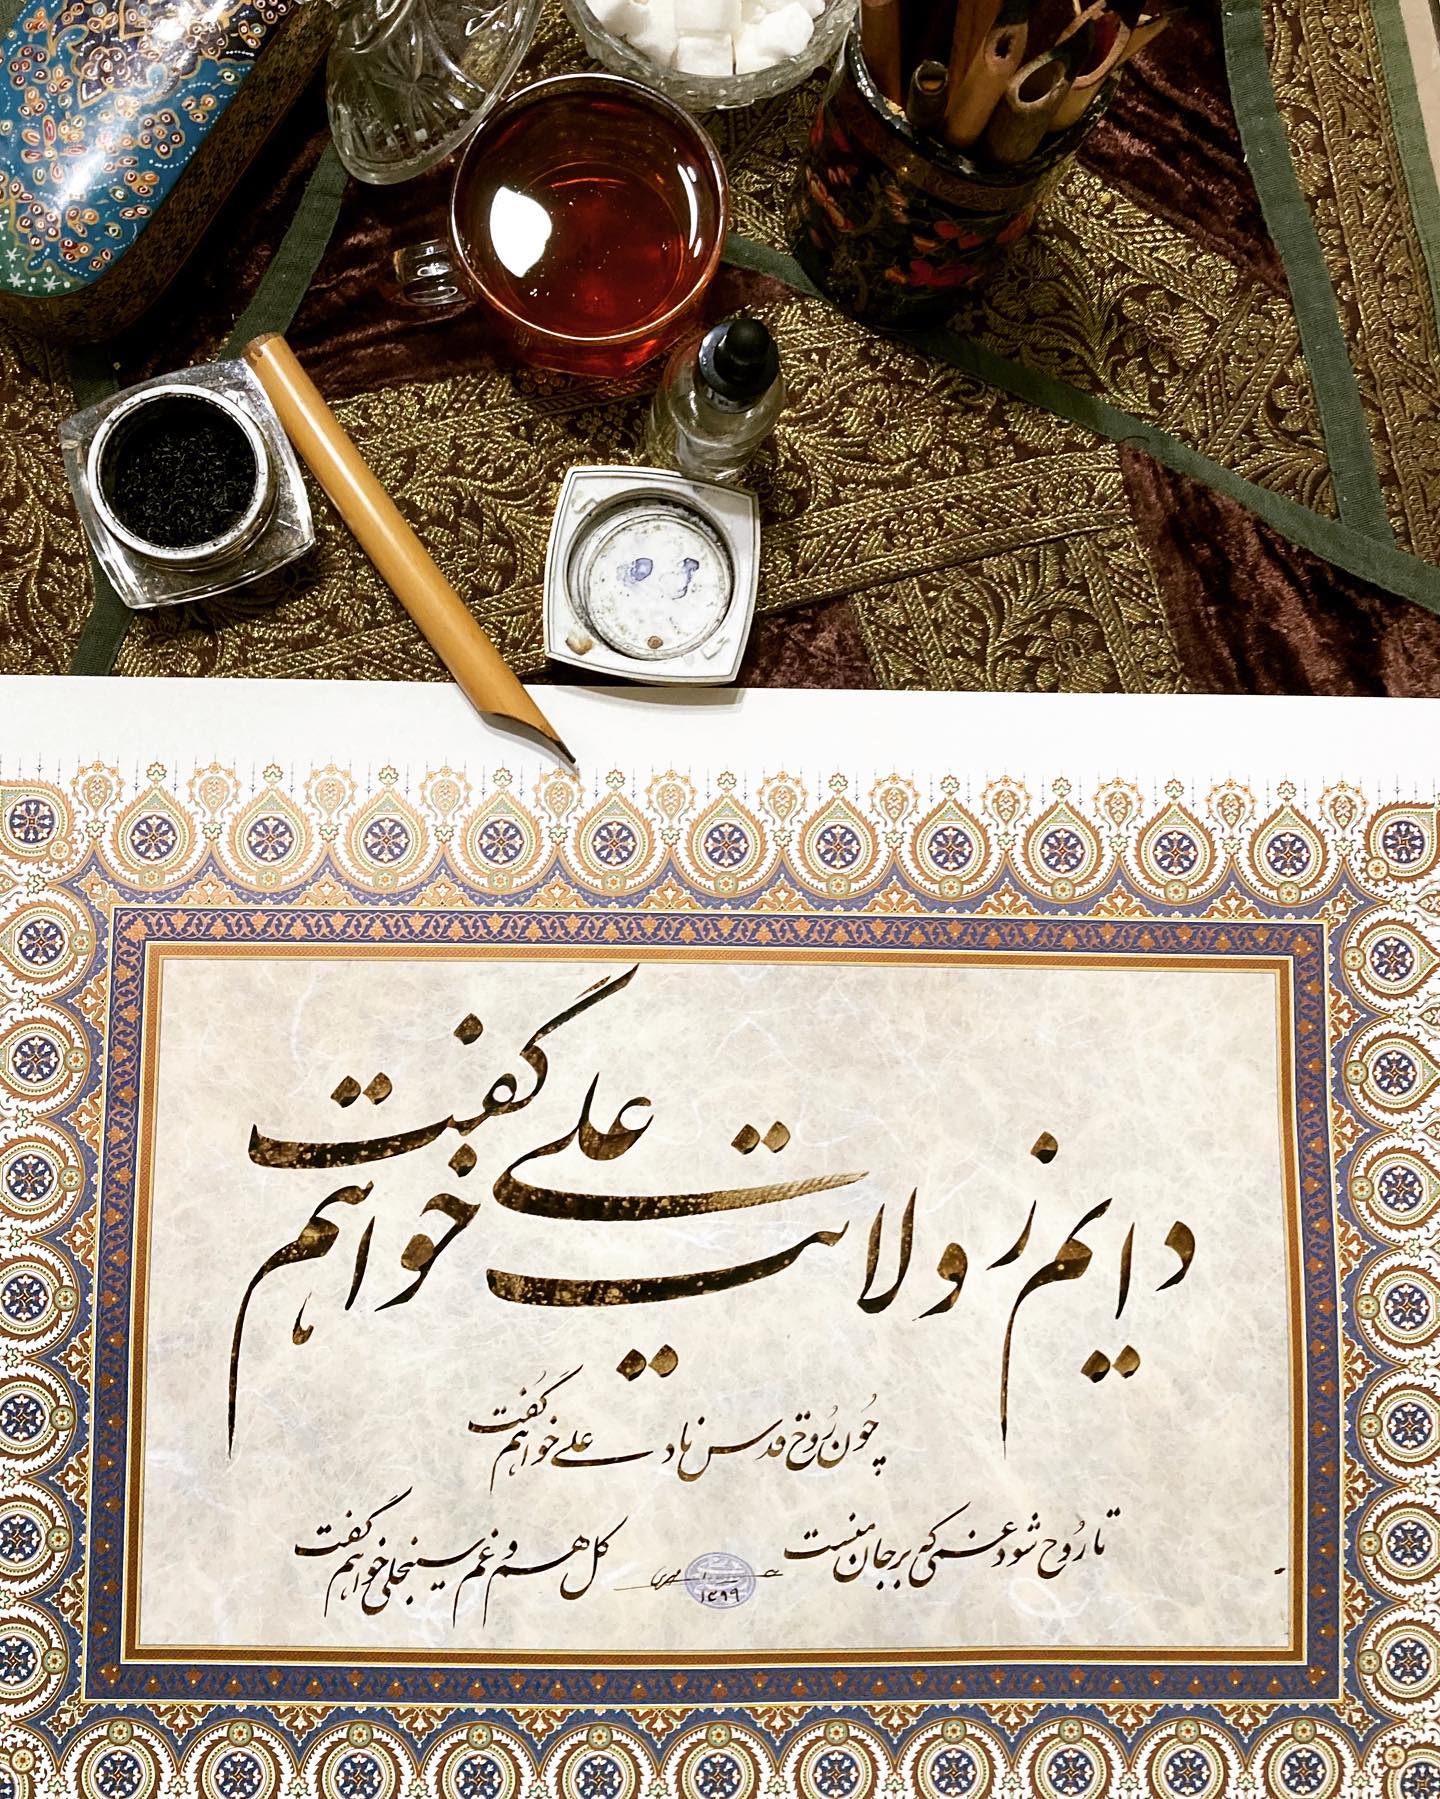 دایم ز ولایت علی خواهم گفت
چون روح قدس ناد علی خواهم گفت
تا روح شود غمی که بر جان منست
کل هم و غم سینجلی خواهم گفت
۱۳۹۹